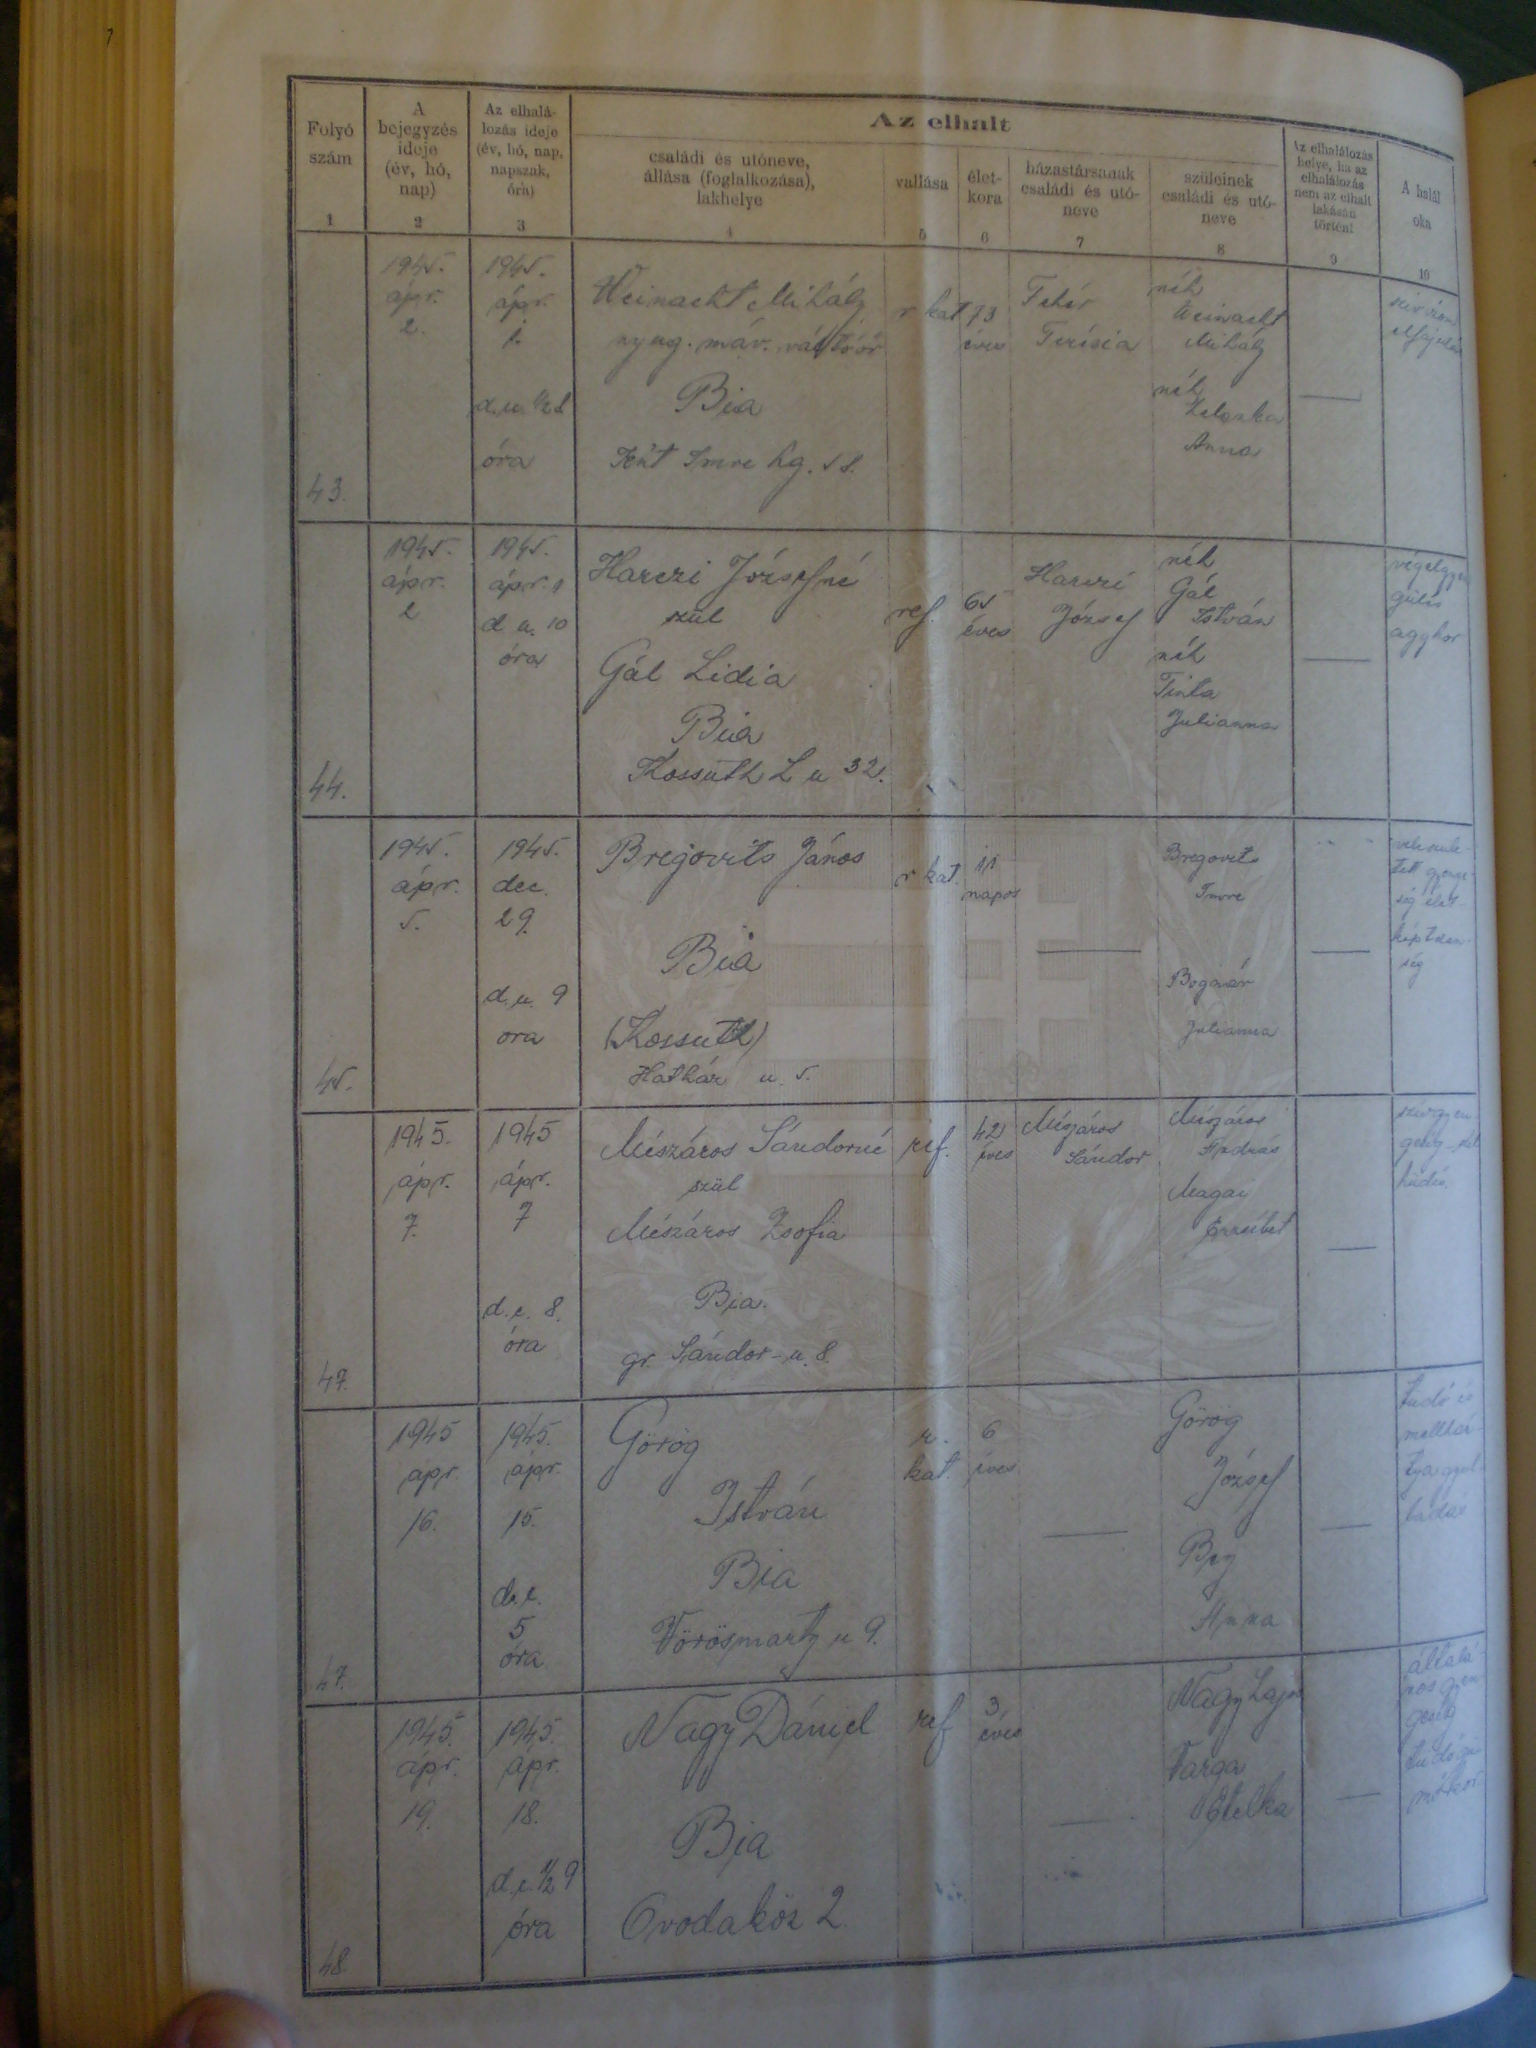 Az elhalt
Folyó
szám
A
bejegyzés
ideje
(év, hó,
nap)
Az elhalá-
lozás ideje
(év, hó, nap,
napszak,
óra)
családi és utóneve,
állása (foglalkozása),
lakhelye
vallása
élet-
kora
házastársanak
családi és utó-
neve
szüleinek
családi és utó-
neve
Az elhalálozás
helye, ha az
elhalálozás
nem az elhalt
lakásán
történt
A halál
oka
1
2
3
4
5
6
7
8
9
10
43.
1945.
ápr.
2.
1945.
ápr.
1.
d.u. 1/2 8
óra
Weinacht Mihály
nyug. máv. váltóőr
Bia
Imre hg.
r kat
73
éves
Fehér
Terézia
néh
Weinacht
Mihály
néh
Anna
44.
1945.
ápr.
2
1945.
ápr. 1
d u. 10
óra
Harczi Józsefné
szül
Gál Lidia
Bia
Kossuth L u 32.
ref.
65
éves
Harczi
József
néh
Gál
István
néh
Tinta
Julianna
végelgyen
gülés
agykor
45.
1945.
ápr.
5.
1945.
dec.
29.
d.u. 9
ora
Bregovits János
Bia
(Kossuth)
Hathár u. 5.
r kat.
11
napos
Bregovits
Imre
Bognár
Julianna
veleszüle-
tett gyenge-
ség élet-
képtelen-
ség
47.
1945.
ápr.
7.
1945
ápr.
7
d.e. 8.
óra
Mészáros Sándorné
szül
Mészáros Zsofia
Bia.
gr. Sándor-u. 8.
ref.
42
éves
Mészáros
Sándor
Mészáros
András
Magai
Erzsébet
szívgyen-
geség
hüdés.
47.
1945
ápr.
16.
1945.
ápr.
15.
d.e.
5
óra
Görög
István
Bia
Vörösmarty u 9.
r.
kat.
6
éves
Görög
József
Bey
Anna
tüdő és
mellhár-
tya gyul-
ladás
48.
1945.
ápr.
19.
1945.
ápr.
18.
d.e. 1/2 9
óra
Nagy Dániel
Bia
Ovodaköz 2
ref
3
éves
Nagy Lajos
Varga
Etelka
általá-
nos gyen
geség
tüdőgü
mőkor